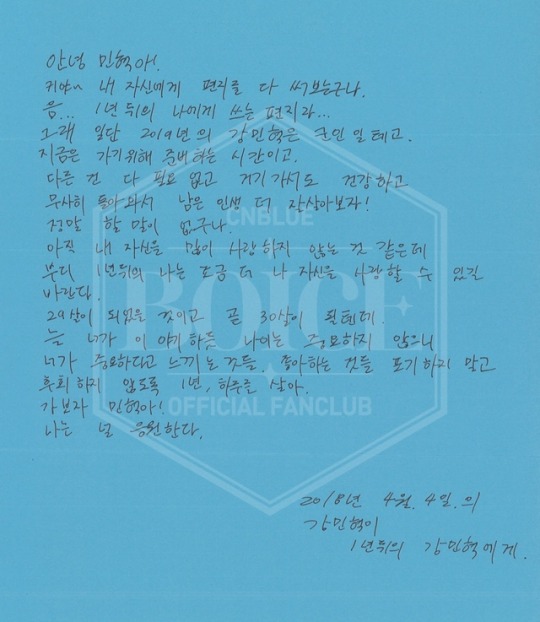 안녕 민혁아!
귀야n 내 자신에게 편지를 다 써보는구나.
음... 1년 뒤의 나에게 쓰는 편지라...
그래 일단 2019년의 강민혁은 군인일테고.
지금은 가기위해 준비하는 시간이고.
다른 건 다 필요 없고 거기 가서도 건강하고
무사히 돌아와서 남은 인생 더 잘살아보자!
정말 할 말이 없구나.
아직 내 자신을 많이 사랑하지 않는 것 같은데
부디 1년뒤의 나는 조금 더 나 자신을 사랑할 수 있길
바란다.
29살이 되었을 것이고 곧 30살이 될텐데.
늘 너가 이야기하듯 나이는 중요하지 않으니
너가 중요하다고 느끼는것들, 좋아하는 것들 포기하지 말고
후회하지 않도록 1년, 하루를 살아.
가보자 민혁아!
나는 널 응원한다.
2018년 4월. 4일.의
강민혁이
1년뒤의 강민혁에게.
CNBLUE
BOICE
OFFICIAL FANCLUB